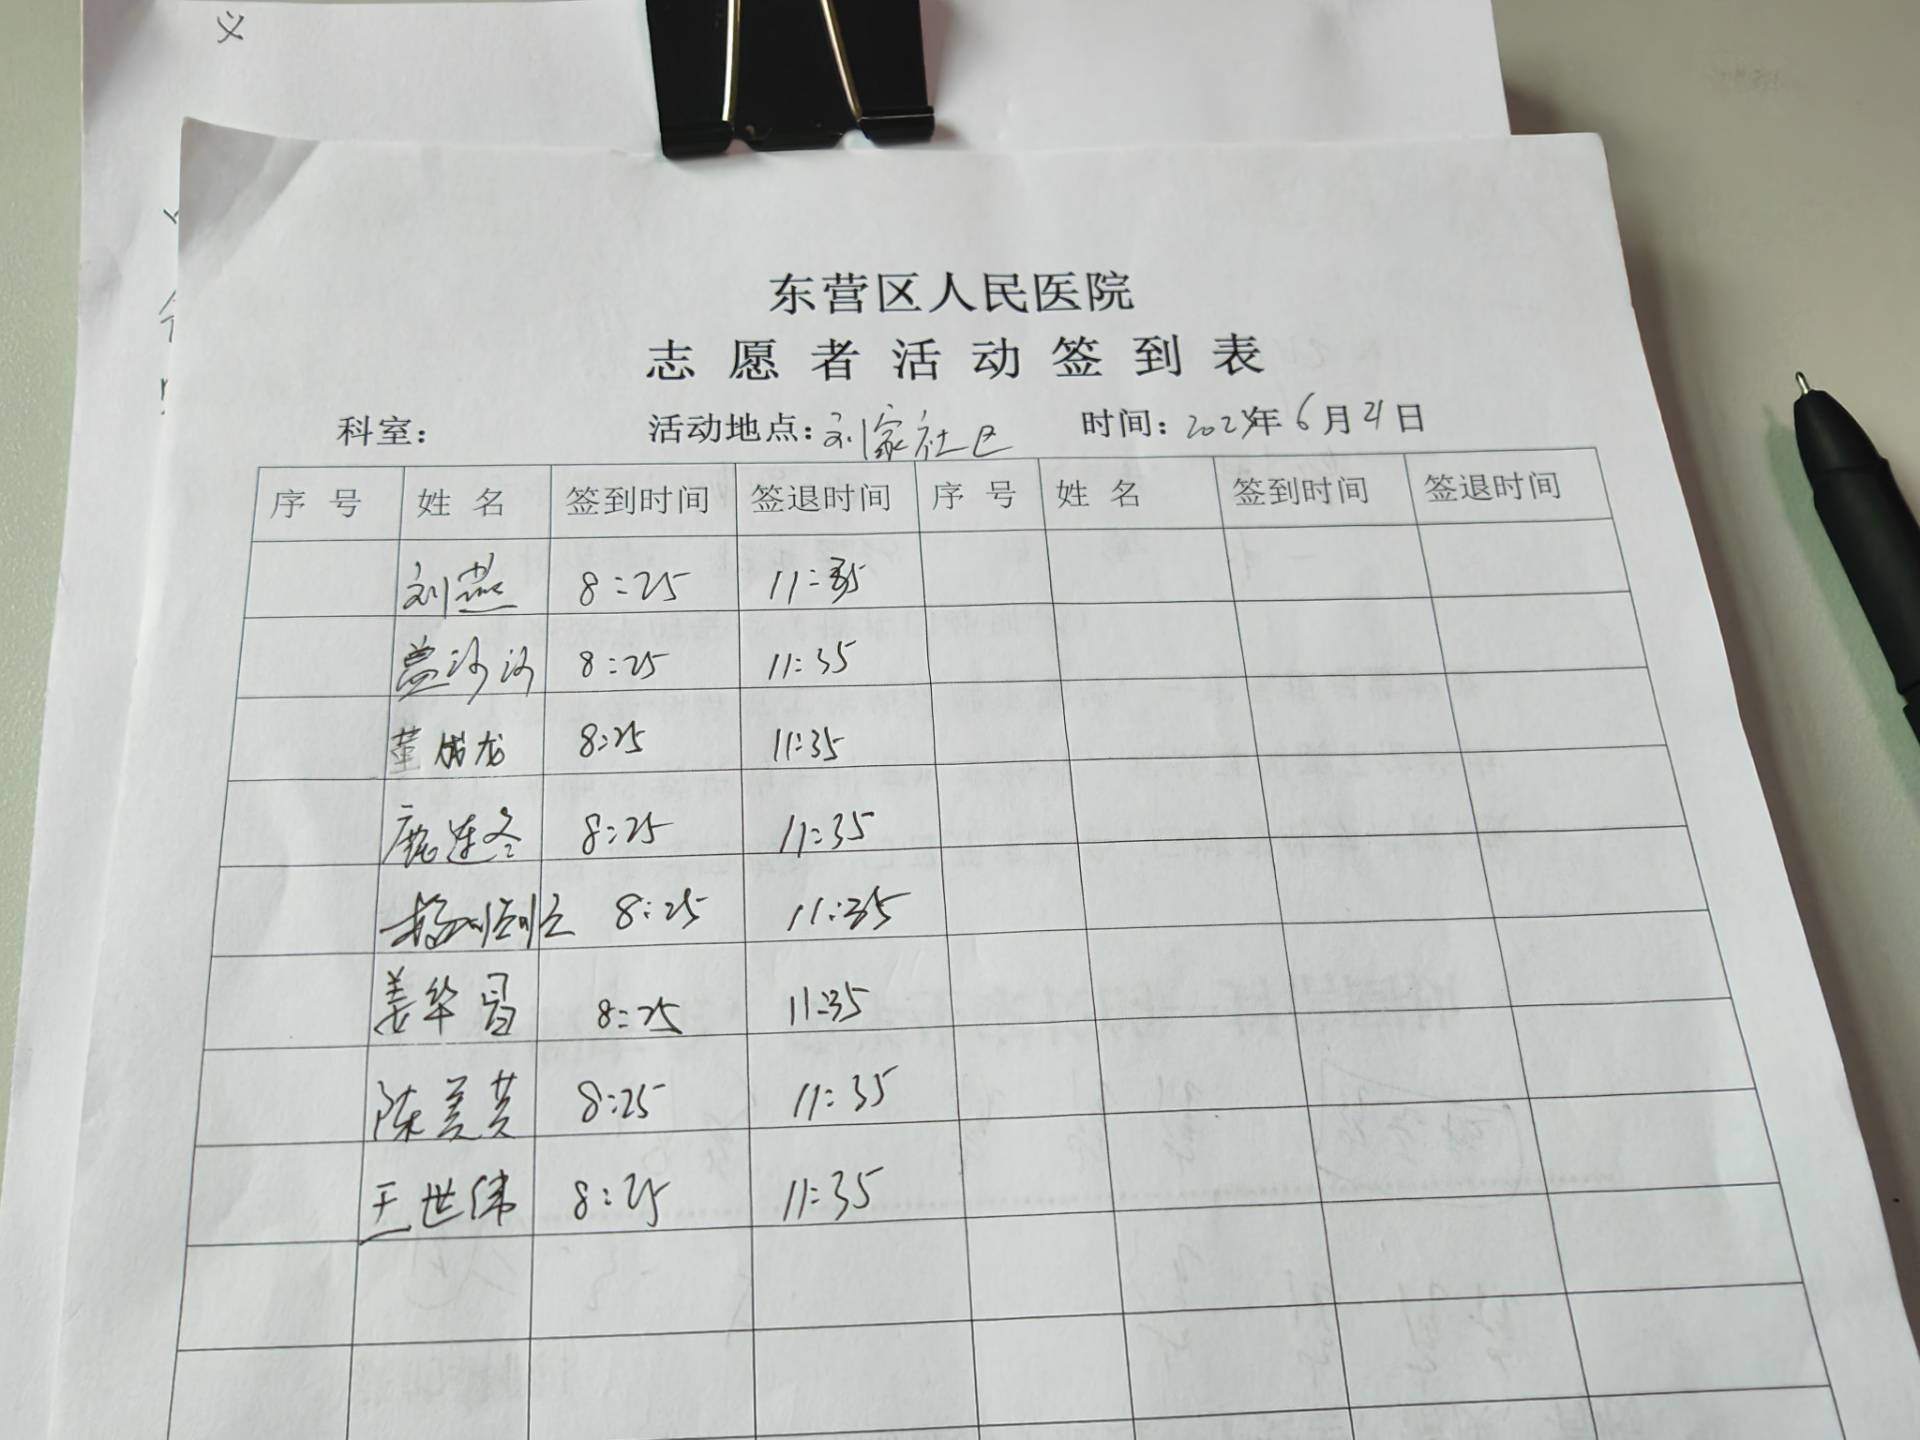 义
东营区人民医院
志愿者活动签到表
科室： 活动地点：刘家社区 时间：2024年6月21日
序号 姓名 签到时间 签退时间 序号 姓名 签到时间 签退时间
刘燕 8:25 11:35
盖沙沙 8:25 11:35
董成龙 8:25 11:35
鹿连冬 8:25 11:35
8:25 11:35
姜华昌 8:25 11:35
陈美芸 8:25 11:35
王世伟 8:25 11:35